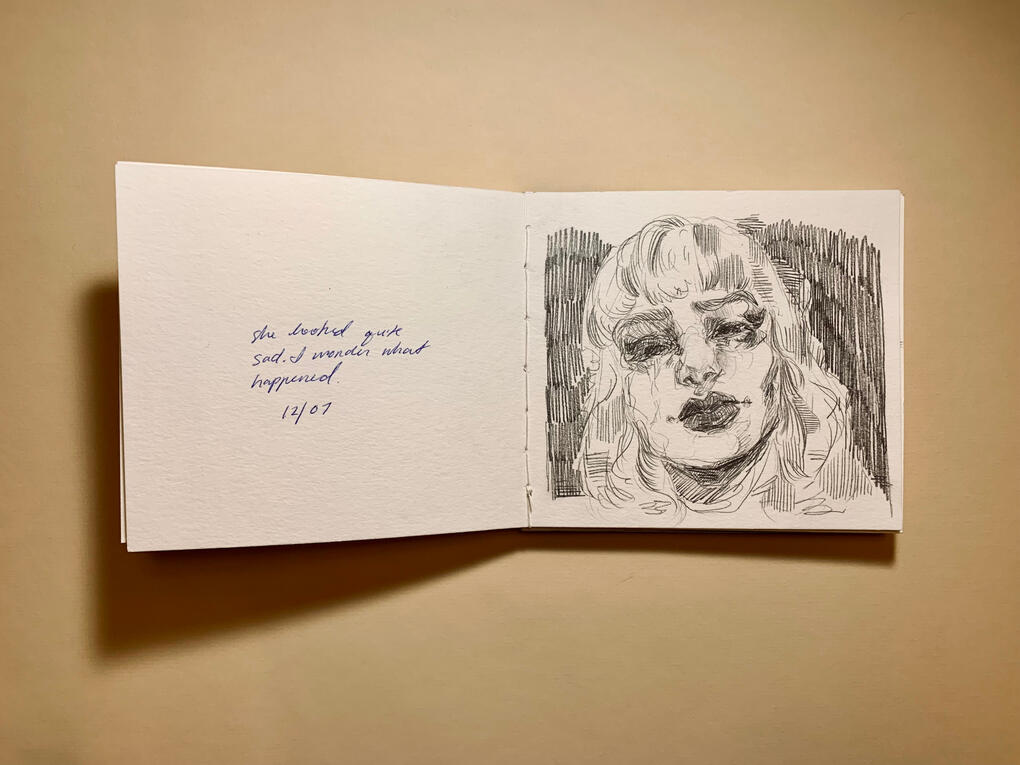 she looked quite
sad. I wonder what
happened.
12/07